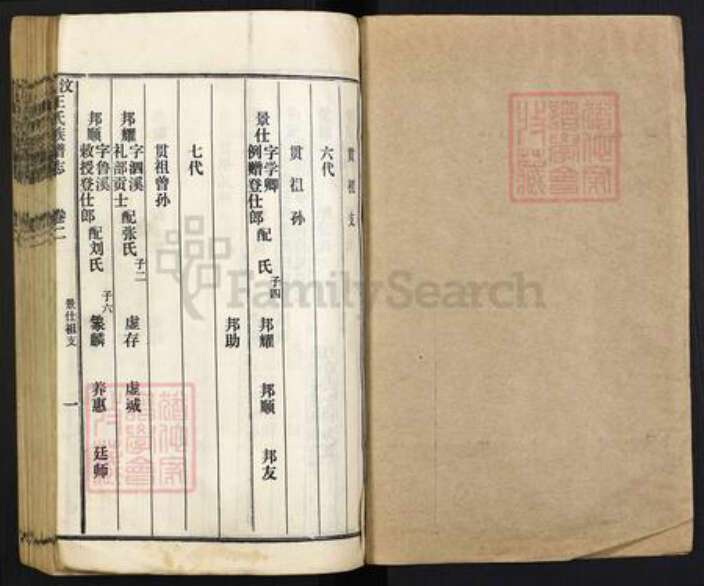 贯祖支
六代
贯祖孙
景仕 字学卿 例赠登仕郎 配 氏 子四 邦耀 邦顺 邦友
邦助
七代
贯祖曾孙
邦耀 字泗溪 礼部贡士 配张氏 子二 虚存 虚诚
邦顺 字鲁溪 敕授登仕郎 配刘氏 子六 象麟 养惠 廷师
汶王氏族谱志 卷二 景仕祖支 一
FamilySearch